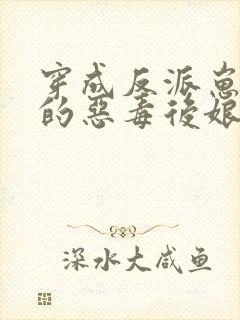 穿成反派崽
的惡毒後娘
深水大咸鱼